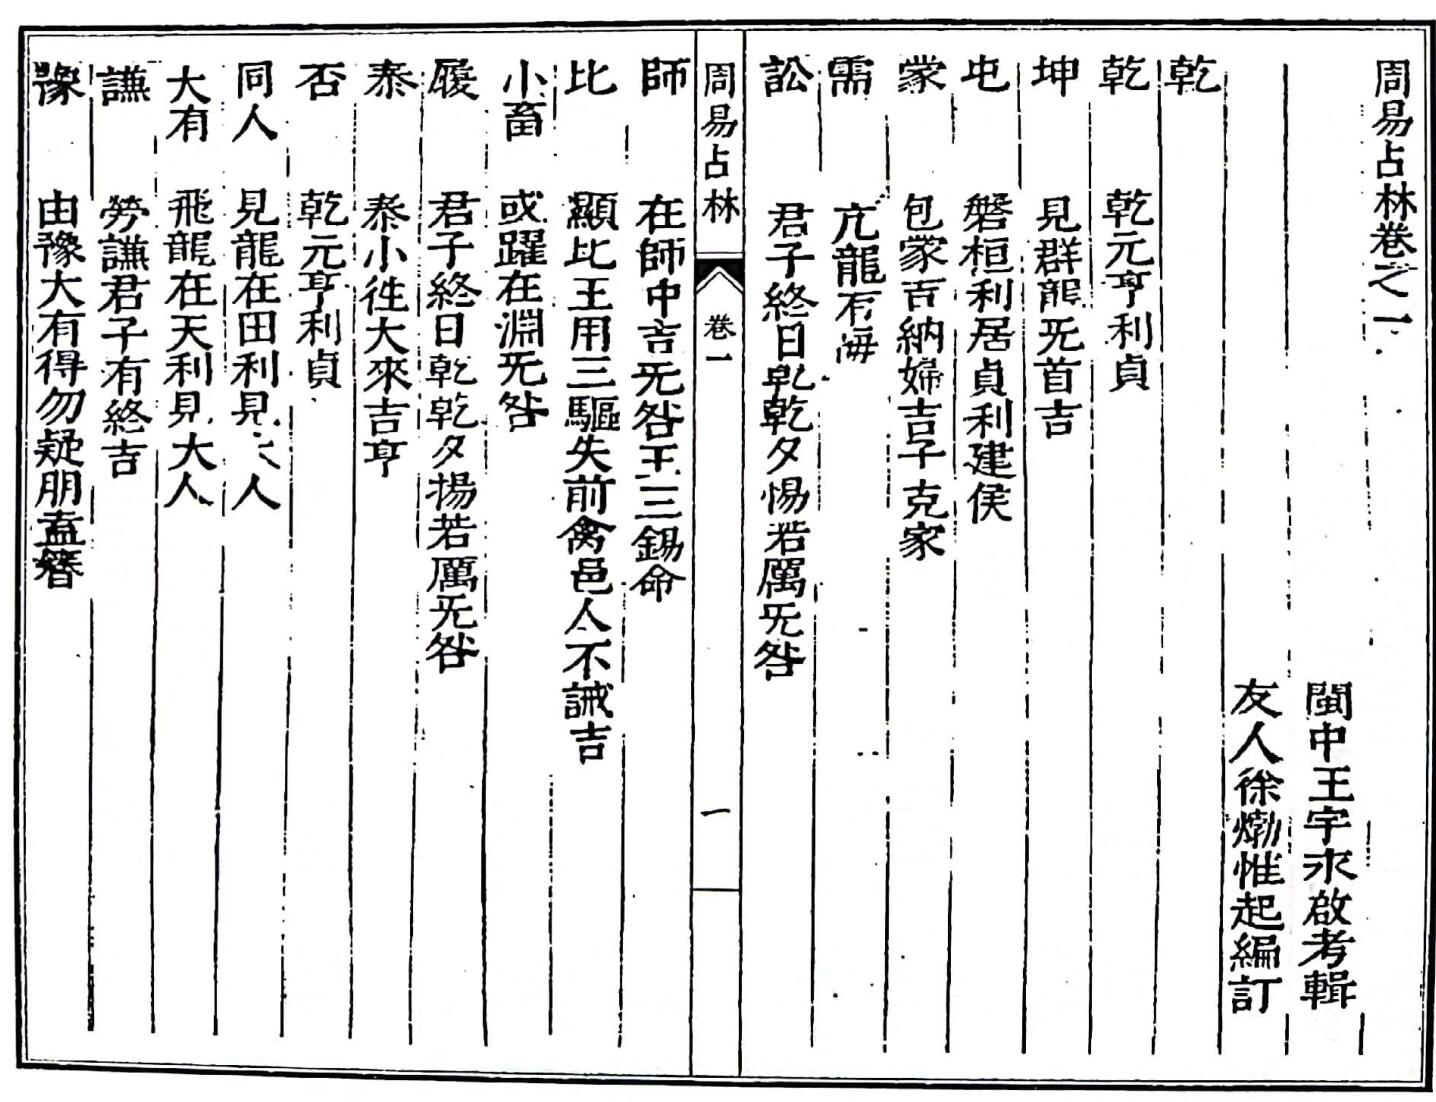 周易占林卷之一
閩中王宇永啟考輯
友人徐𤊹惟起編訂
乾
乾 乾元亨利貞
坤 見群龍旡首吉
屯 磐桓利居貞利建侯
蒙 包蒙吉納婦吉子克家
需 亢龍有悔
訟 君子終日乾乾夕惕若厲旡咎
周易占林 卷一 一
師 在師中吉旡咎王三錫命
比 顯比王用三驅失前禽邑人不誡吉
小畜 或躍在淵旡咎
履 君子終日乾乾夕惕若厲旡咎
泰 泰小徃大來吉亨
否 乾元亨利貞
同人 見龍在田利見大人
大有 飛龍在天利見大人
謙 勞謙君子有終吉
豫 由豫大有得勿疑朋盍簪